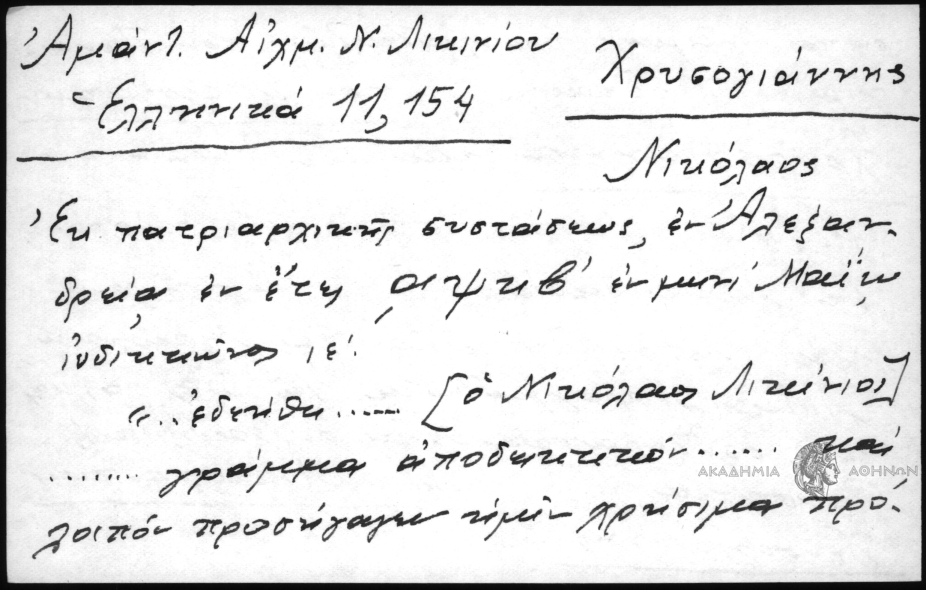 Ἀμάντ. Αἰχμ. Ν. Λιτινίου
Ἑλληνικά 11, 154
Χρυσογιάννης
Νικόλαος
Ἐκ πατριαρχικῆς συστάσεως, ἐν Ἀλεξαν-
δρείᾳ ἐν ἔτει ͵αψκβ' ἐν μηνί Μαΐῳ
ἰνδικτιῶνος ιε'.
«..ἐδεήθη...... [ὁ Νικόλαος Λιτίνιος]
........ γράμμα ἀποδεικτικόν....... καί
λοιπόν προσήγαγεν ἡμῖν χρήσιμα πρό-
ΑΚΑΔΗΜΙΑ ΑΘΗΝΩΝ